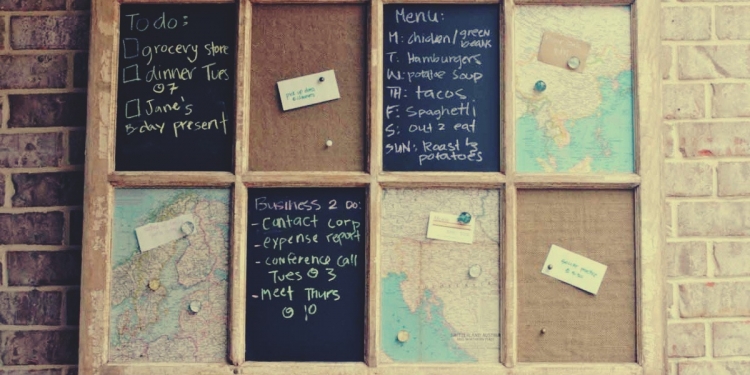 To do:
grocery store
dinner Tues
@ 7
Jane's
B-day present
Menu:
M: chicken/green
beans
T: Hamburgers
W: potatoe Soup
TH: tacos
F: Spaghetti
S: out 2 eat
SUN: Roast &
potatoes
Business 2 Do:
- Contact Corp
- expense report
- conference call
Tues @ 3
- Meet Thurs
@ 10